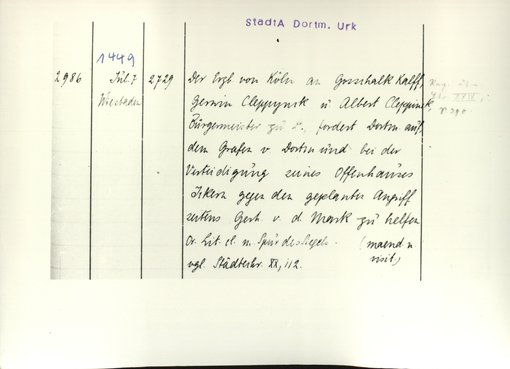 StadtA Dortm. Urk
1449
2986 Jul. 7 2729 Der Erzb. von Köln an Gosschalk Kalff,
Wiestaden Gerwin Cleppynck u Albert Cleppinck
Bürgermeister zu D., fordert Dortm auf
dem Grafen v. Dortmund bei der
Verteidigung seines Offenhauses
Ickern gegen den geplanten Angriff
seitens Gerh v. d Mark zu helfen
Or. Lit. cl. m. Spur des Siegels. (maend u
vgl. Städtechr. XX, 112. visit)